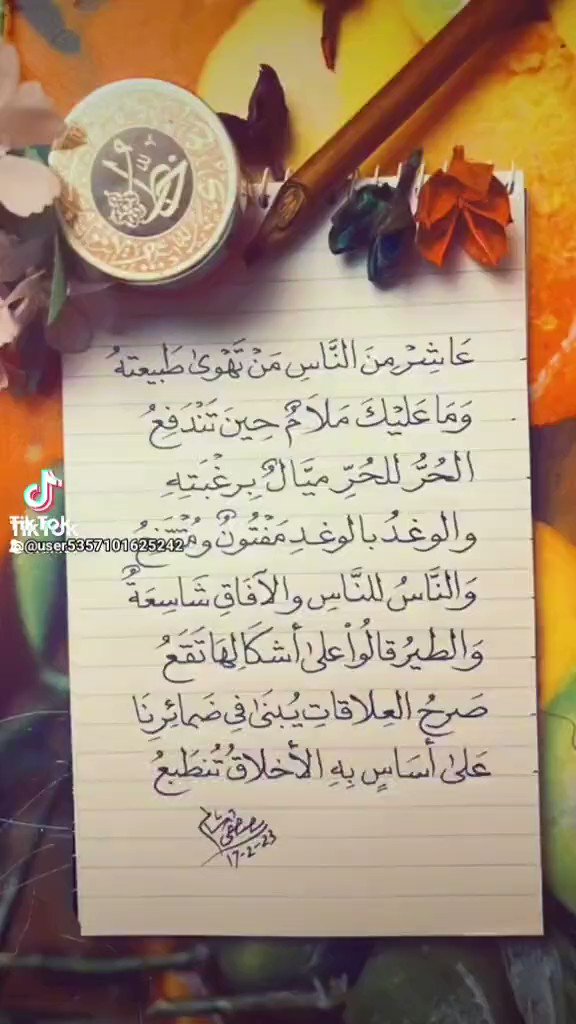 عَاشِرْ مِنَ النَّاسِ مَنْ تَهْوىٰ طَبيعتهُ
وَمَا عَليْكَ مَلاَمٌ حِينَ تَنْدَفِعُ
الحُرُّ للحُرِّ ميَّالٌ بِرغْبَتِهِ
والوغدُ بالوغدِ مَفْتُونٌ ومُقْتَنعُ
وَالنَّاسُ للنَّاسِ والآفَاقِ شَاسِعَةٌ
وَالطيرُ قالُواْ علىٰ أشكَالِهَا تَقَعُ
صَرحُ العِلاقاتِ يُبنَىٰ فِي ضَمائِرِنَا
عَلىٰ أسَاسٍ بِهِ الأخلاقُ تُنطَبعُ
17-2-23
TikTok
@user5357101625242